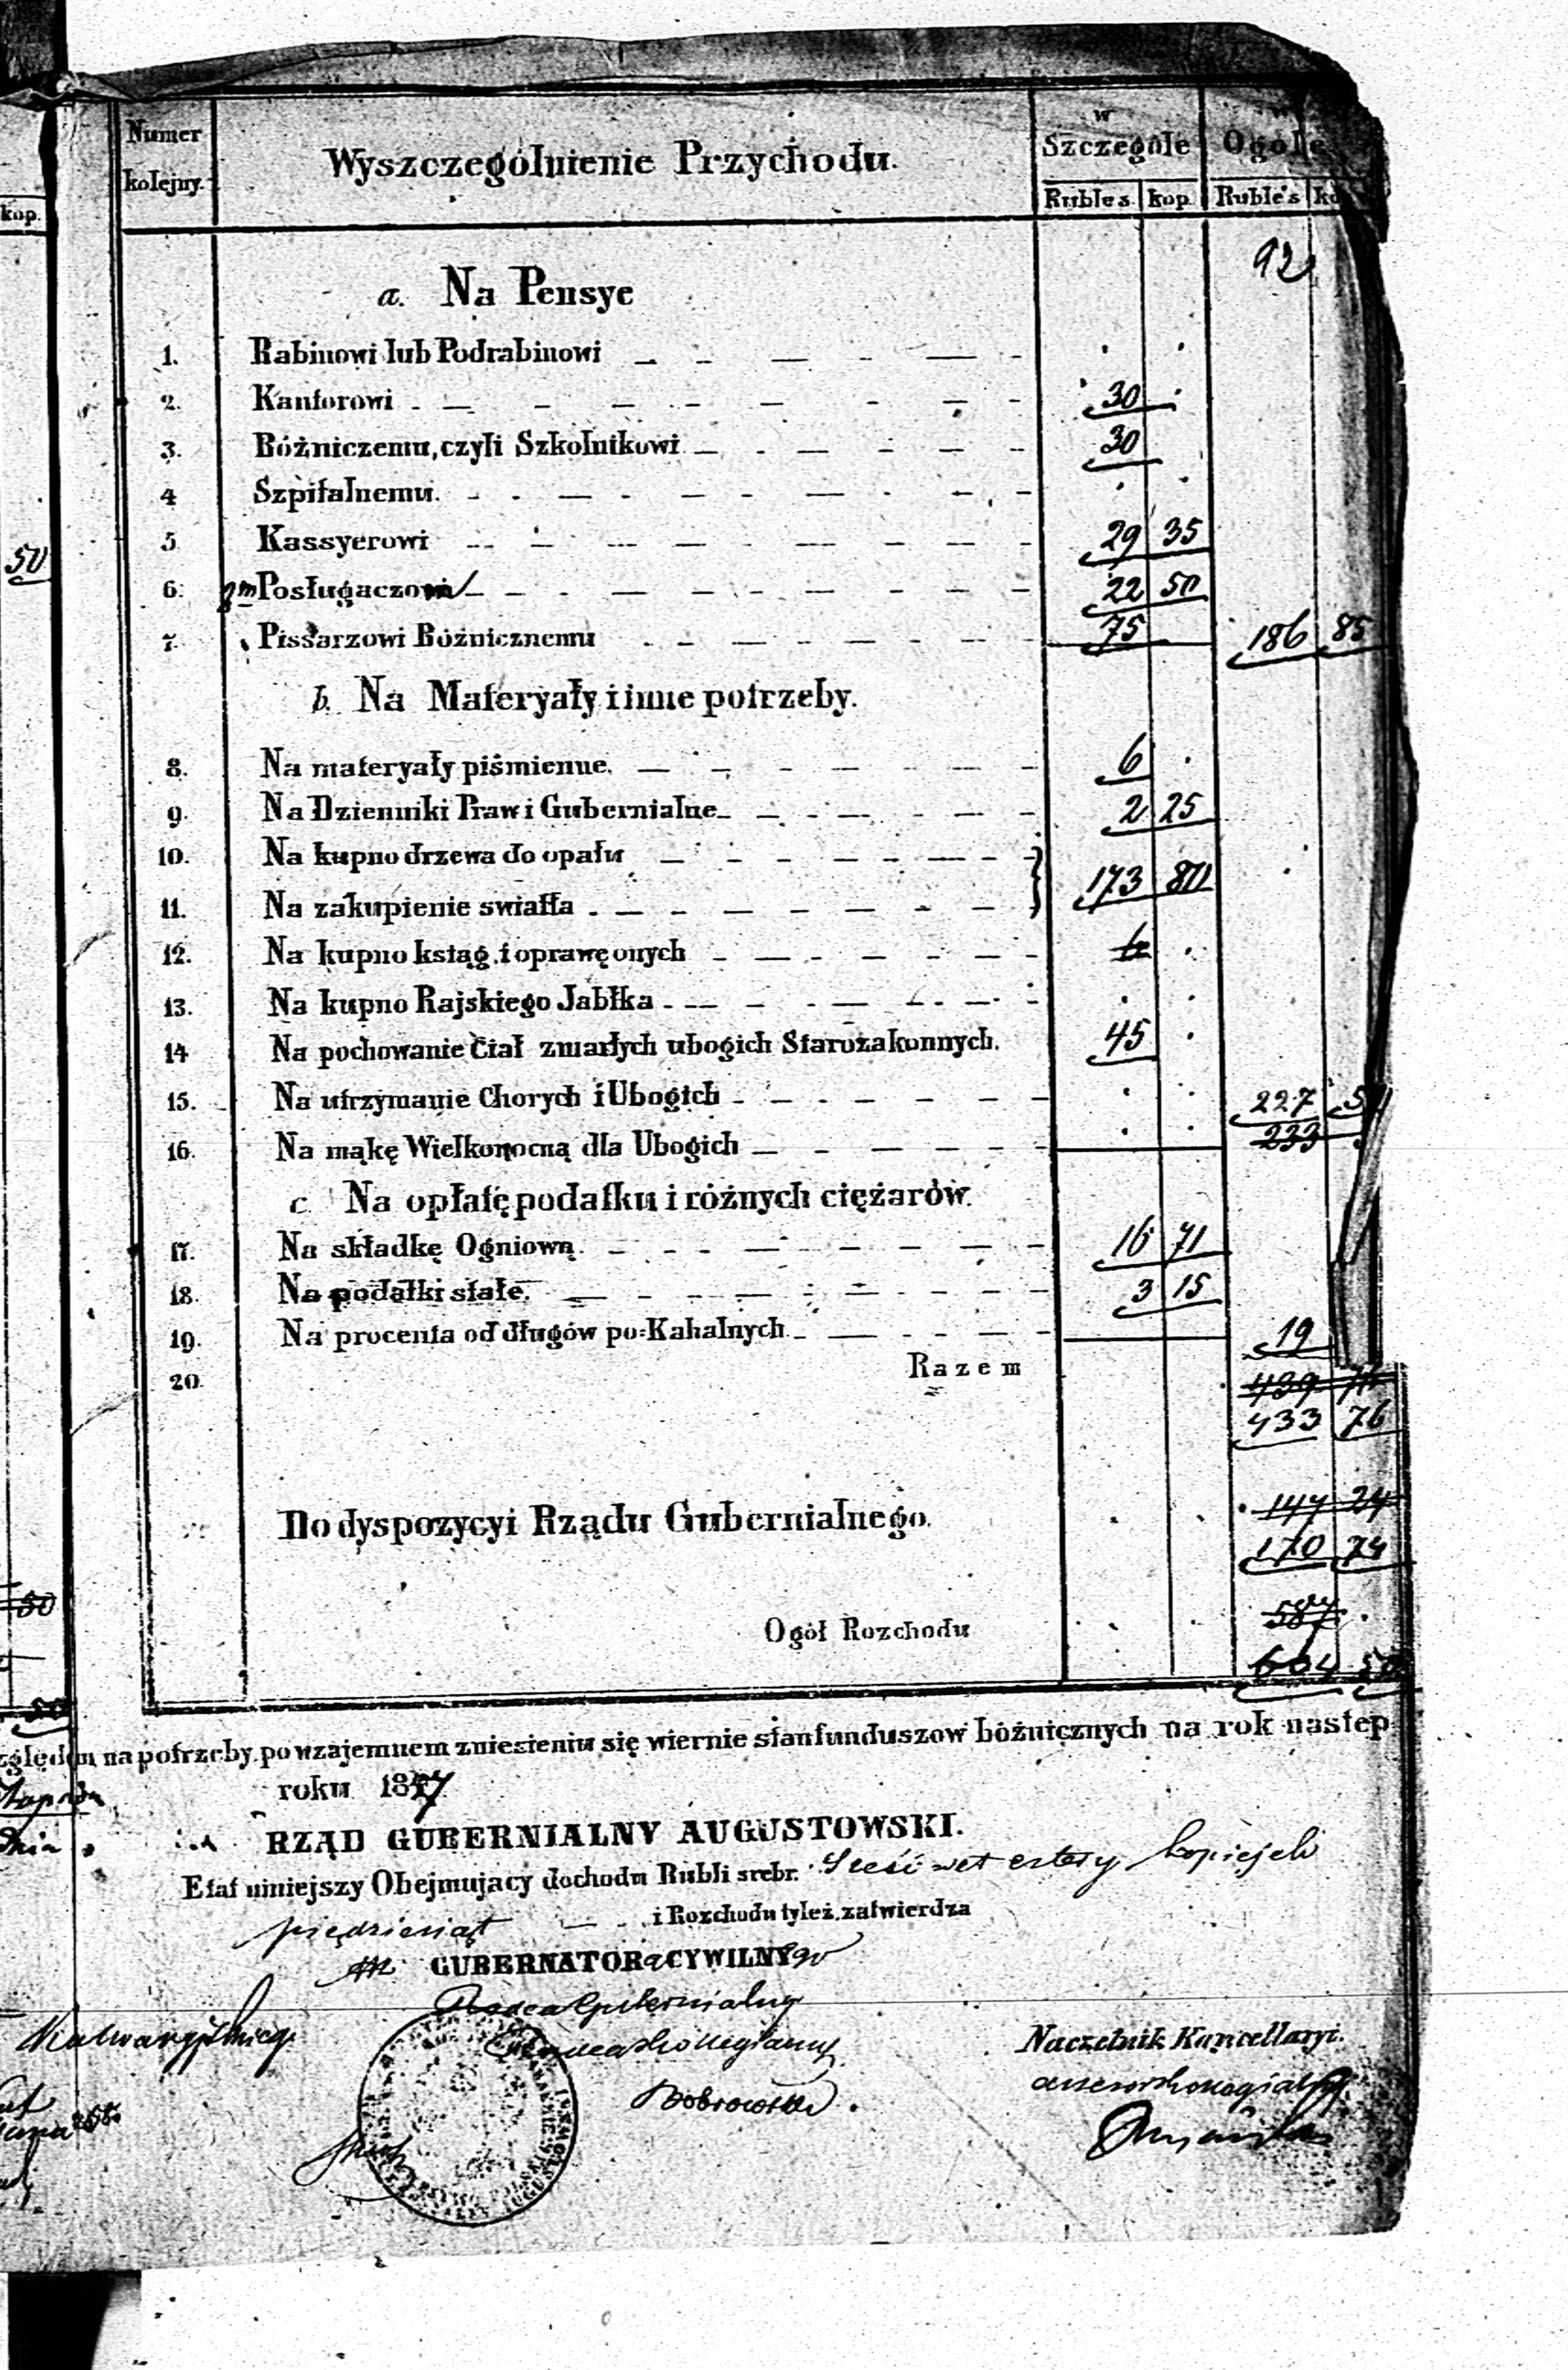 kop.
50
50
50
Numer kolejny.
Wyszczególnienie Przychodu.
w Szczególe
w Ogole
Rubles kop. Ruble's ko
92
a. Na Pensye
1. Rabinowi lub Podrabinowi
2. Kantorowi 30
3. Bóżniczemu, czyli Szkolnikowi 30
4 Szpitalnemu.
5 Kassyerowi 29 35
6. Posługaczowi 22 50
7. Pissarzowi Bóżnicznemu 75 186 85
b. Na Materyały i inne potrzeby.
8. Na materyały piśmienne. 6
9. Na Dzienniki Praw i Gubernialne 2 25
10. Na kupno drzewa do opału
173 80
11. Na zakupienie swiatła
12. Na kupno ksiąg i oprawę onych 6
13. Na kupno Rajskiego Jabłka
14 Na pochowanie Ciał zmarłych ubogich Starozakonnych. 45
15. Na utrzymanie Chorych i Ubogich 227
233
16. Na mąkę Wielkonocną dla Ubogich
c. Na opłatę podatku i różnych ciężarów.
17. Na składkę Ogniową 16 71
18. Na podatki stałe. 3 15
19. Na procenta od długów po-Kahalnych 19
20. Razem 439 76
433 76
Do dyspozycyi Rządu Gubernialnego. 147 24
170 74
Ogół Rozchodu 587
604 50
względem na potrzeby, po wzajemnem zniesieniu się wiernie stan funduszow bóżnicznych na rok następ
roku 1847
RZĄD GUBERNIALNY AUGUSTOWSKI.
Etat niniejszy Obejmujący dochodu Rubli srebr. Sześćset cztery kopiejek
pięćdziesiąt i Rozchodu tyleż, zatwierdza
GUBERNATORa CYWILNego
Radca Gubernialny
Radca Kollegialny
Naczelnik Kancellaryi.
Bobrowski